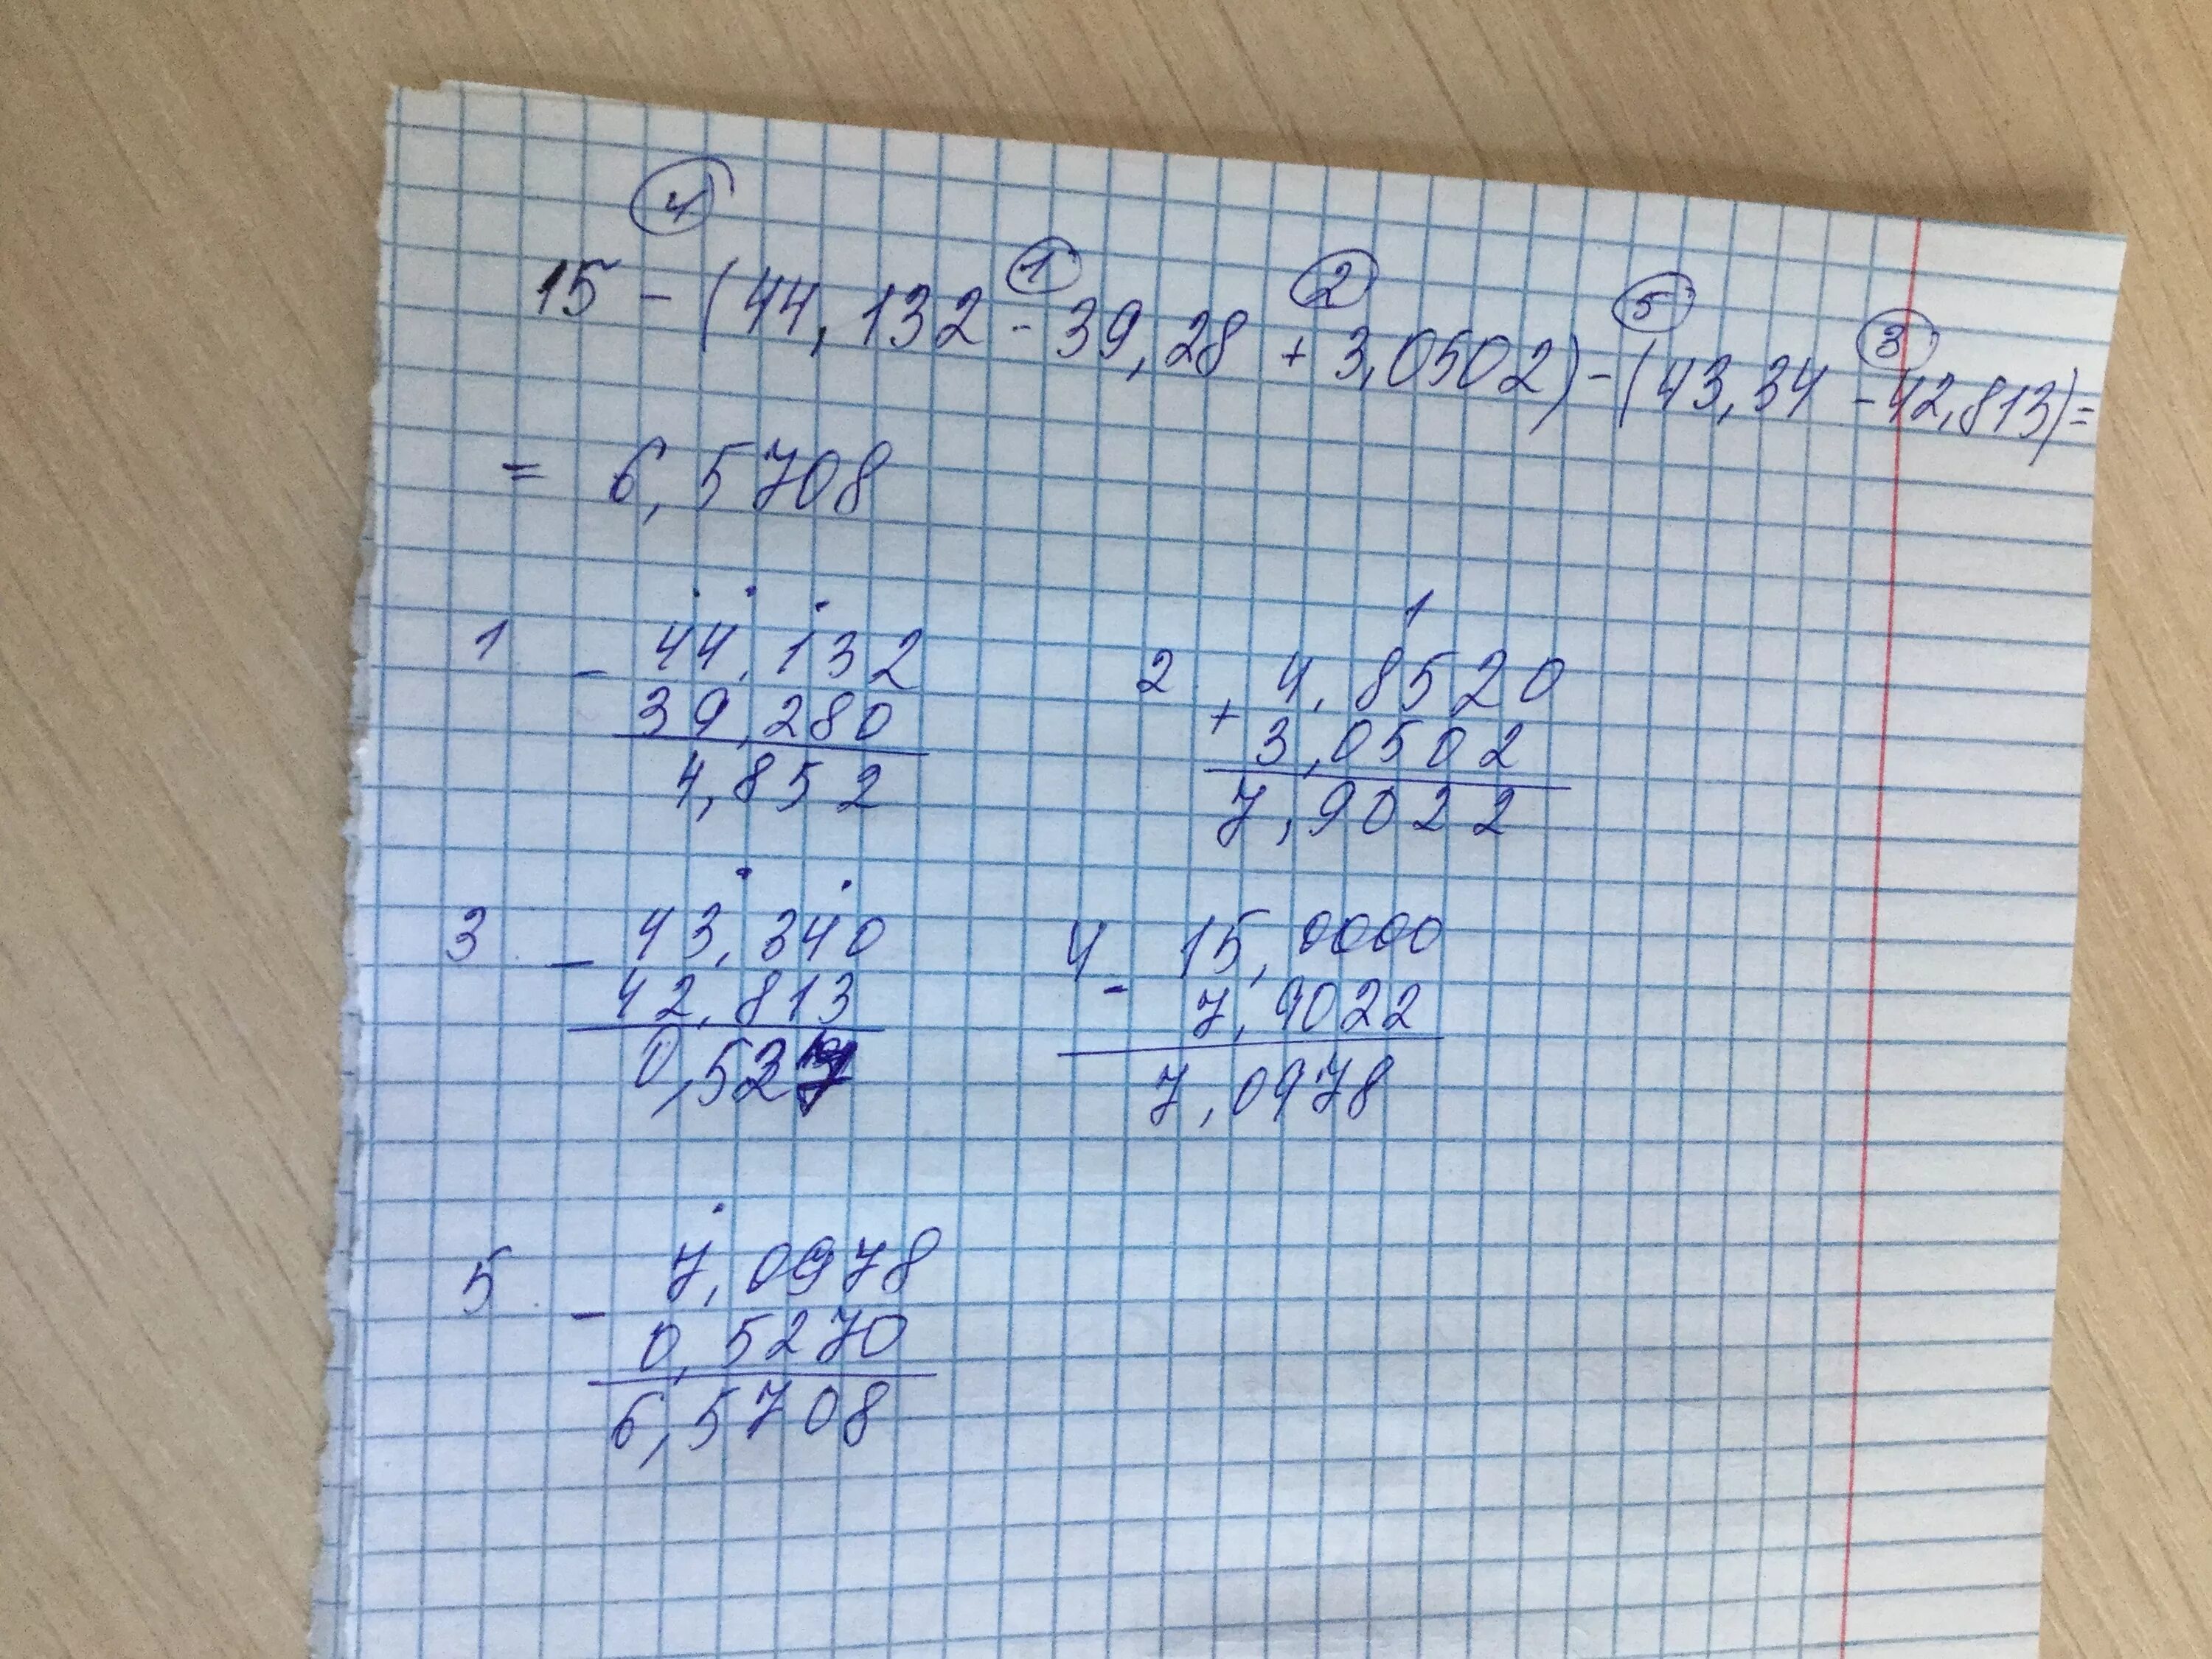 ④ ① ② ⑤ ③
15 - (44,132 - 39,28 + 3,0502) - (43,34 - 42,813) =
= 6,5708
1 - 44,132
39,280
4,852
1
2 + 4,8520
3,0502
7,9022
3 - 43,340
42,813
0,527
4 - 15,0000
7,9022
7,0978
5 - 7,0978
0,5270
6,5708